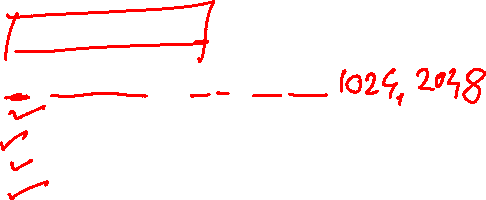 1024, 2048